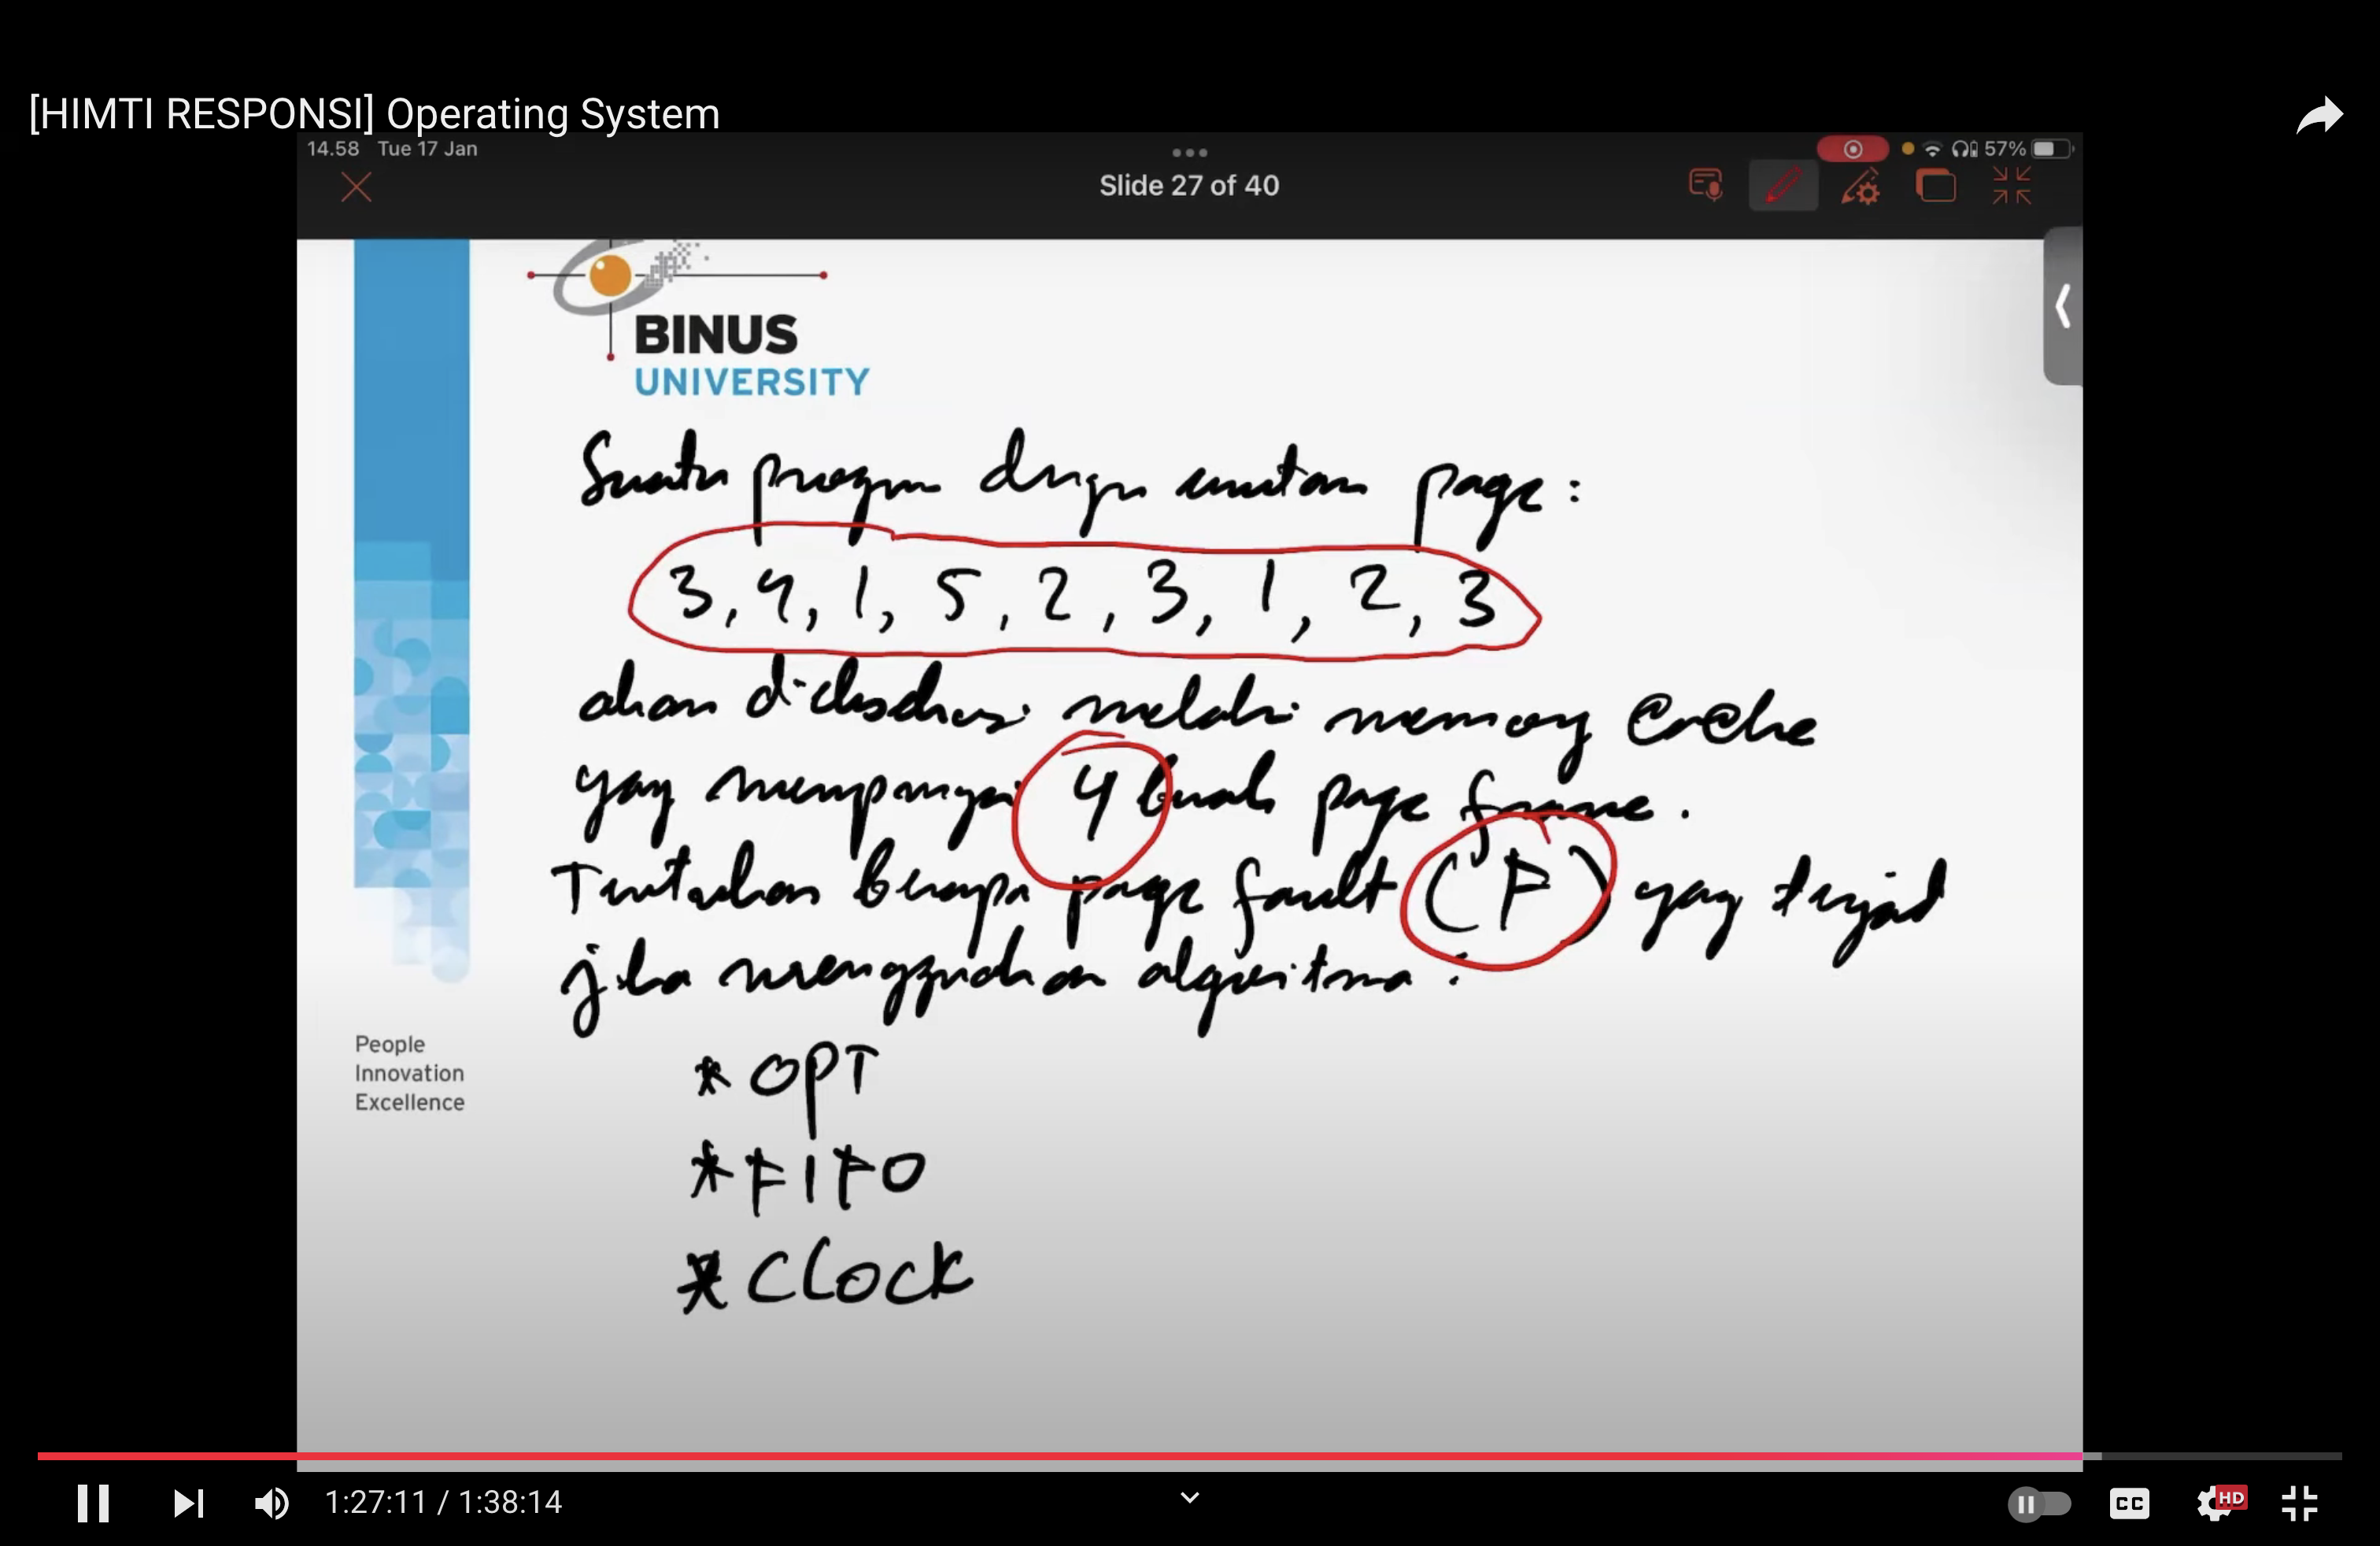 [HIMTI RESPONSI] Operating System
14.58 Tue 17 Jan
57%
Slide 27 of 40
BINUS
UNIVERSITY
Suatu program dengan urutan page :
3, 4, 1, 5, 2, 3, 1, 2, 3
akan dieksekusi melalui memory cache
yang mempunyai 4 buah page frame .
Tentukan berapa page fault (F) yang terjadi
jika menggunakan algoritma :
* OPT
* FIFO
* CLOCK
People
Innovation
Excellence
1:27:11 / 1:38:14
CC
HD